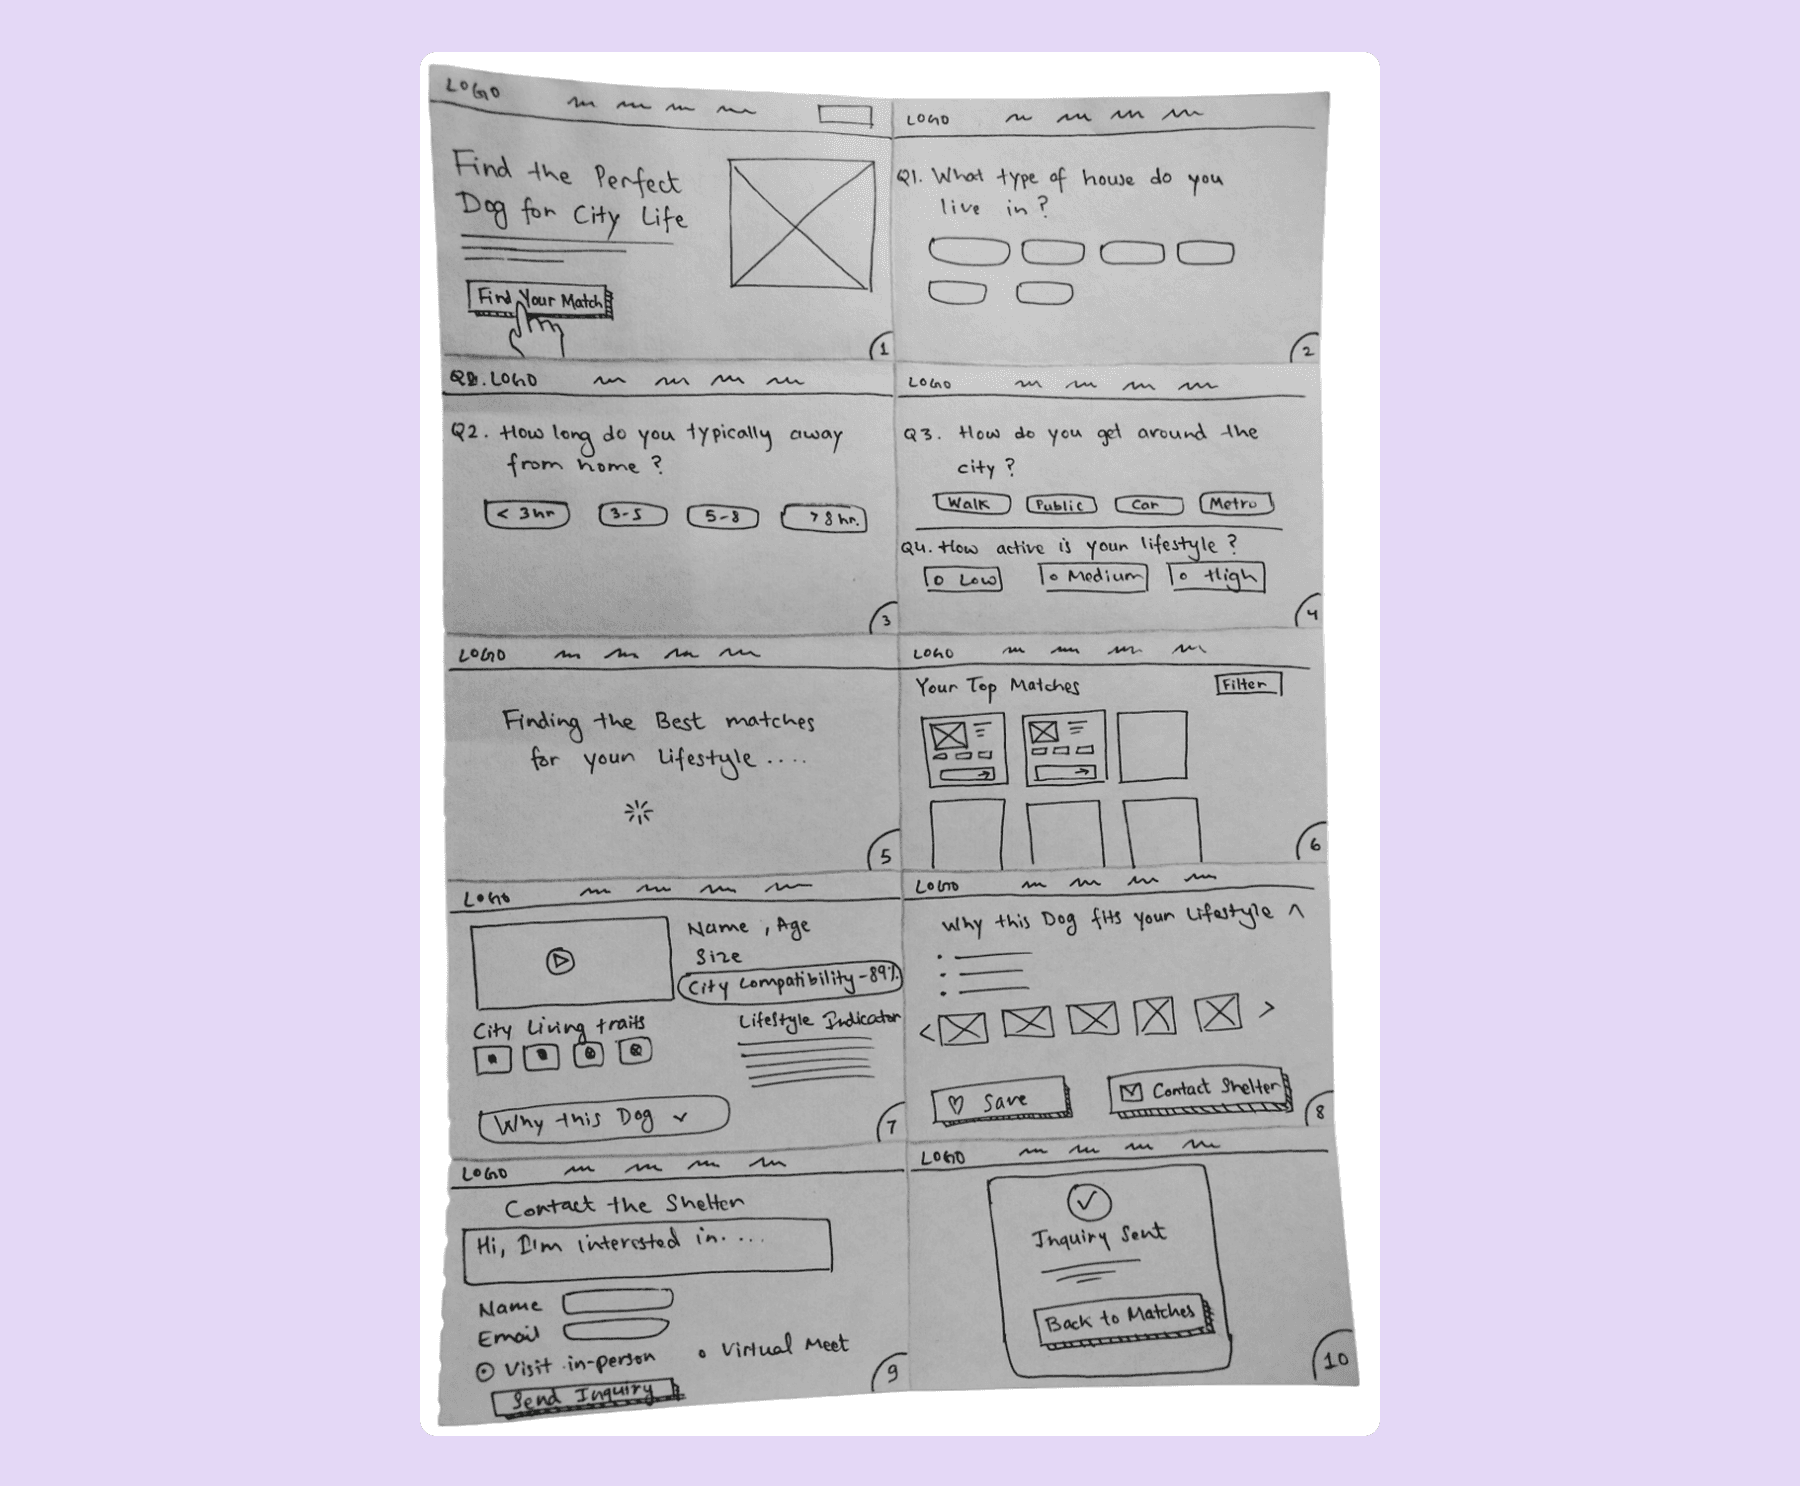 LOGO
Find the Perfect
Dog for City Life
Find Your Match
1
LOGO
Q1. What type of house do you
live in?
2
LOGO
Q2. How long do you typically away
from home?
< 3hr
3-5
5-8
> 8 hr.
3
LOGO
Q3. How do you get around the
city?
Walk
Public
Car
Metro
Q4. How active is your lifestyle?
Low
Medium
High
4
LOGO
Finding the Best matches
for your Lifestyle....
5
LOGO
Your Top Matches
Filter
6
LOGO
Name, Age
Size
City Compatibility-89%
City Living traits
Lifestyle Indicator
Why this Dog
7
LOGO
Why this Dog fits your Lifestyle
Save
Contact Shelter
8
LOGO
Contact the Shelter
Hi, I'm interested in....
Name
Email
Visit in-person
Virtual Meet
Send Inquiry
9
LOGO
Inquiry Sent
Back to Matches
10